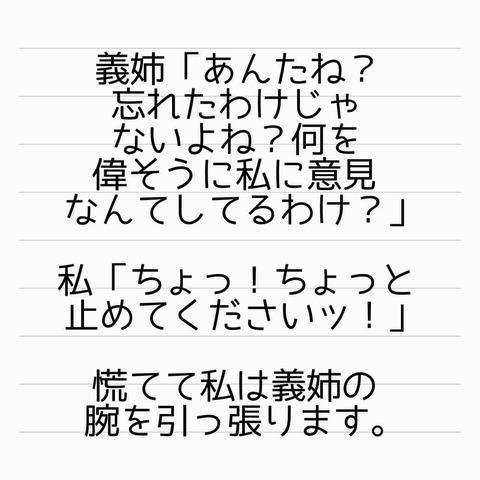 義姉「あんたね？
忘れたわけじゃ
ないよね？何を
偉そうに私に意見
なんてしてるわけ？」
私「ちょっ！ちょっと
止めてくださいッ！」
慌てて私は義姉の
腕を引っ張ります。